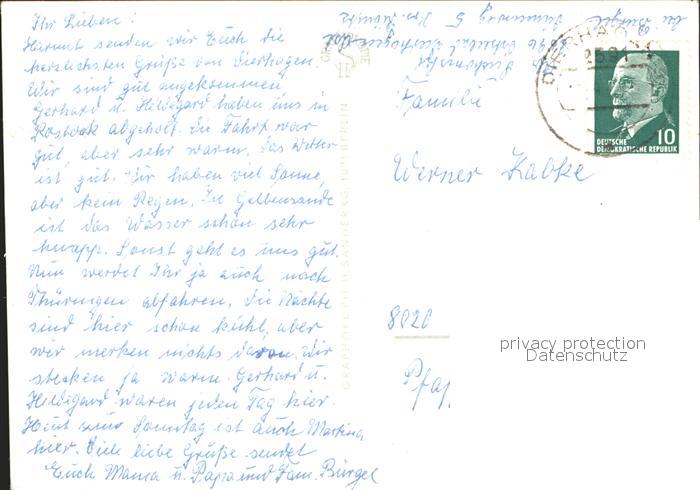 Ihr Lieben!
Hiermit senden wir Euch die
herzlichsten Grüße von Dierhagen.
Wir sind gut angekommen,
Gerhard u. Hildegard haben uns in
Rostock abgeholt. Die Fahrt war
gut, aber sehr warm. Das Wetter
ist gut. Wir haben viel Sonne,
aber kein Regen. In Gelbensande
ist das Wasser schon sehr
knapp. Sonst geht es uns gut.
Nun werdet Ihr ja auch nach
Thüringen abfahren. Die Nächte
sind hier schon kühl, aber
wir merken nichts davon. Wir
stecken ja warm. Gerhard u.
Hildegard waren jeden Tag hier.
Heut zum Sonntag ist auch Martina
hier. Viele liebe Grüße sendet
Euch Mama u. Papa und Fam. Bürgel
Bürgel
5
DIERHAGEN
2591
DEUTSCHE
DEMOKRATISCHE REPUBLIK
10
Familie
Werner Kabke
8020
Pfa
privacy protection
Datenschutz